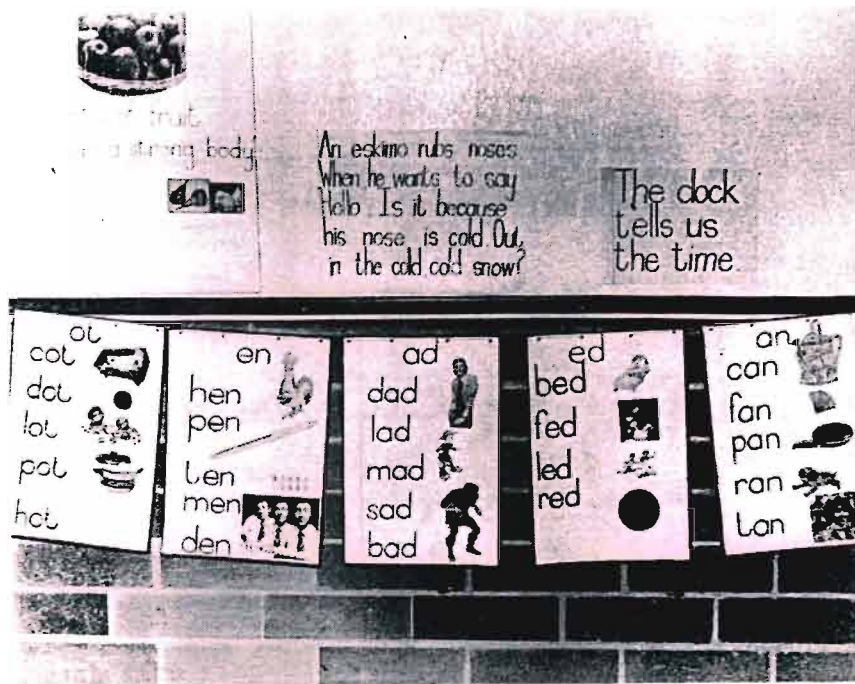 fruit
a strong body
An eskimo rubs noses
When he wants to say
Hello. Is it because
his nose is cold Out,
in the cold cold snow?
The clock
tells us
the time
ot
cot
dot
lot
pot
hot
en
hen
pen
ten
men
den
ad
dad
lad
mad
sad
bad
ed
bed
fed
led
red
an
can
fan
pan
ran
tan